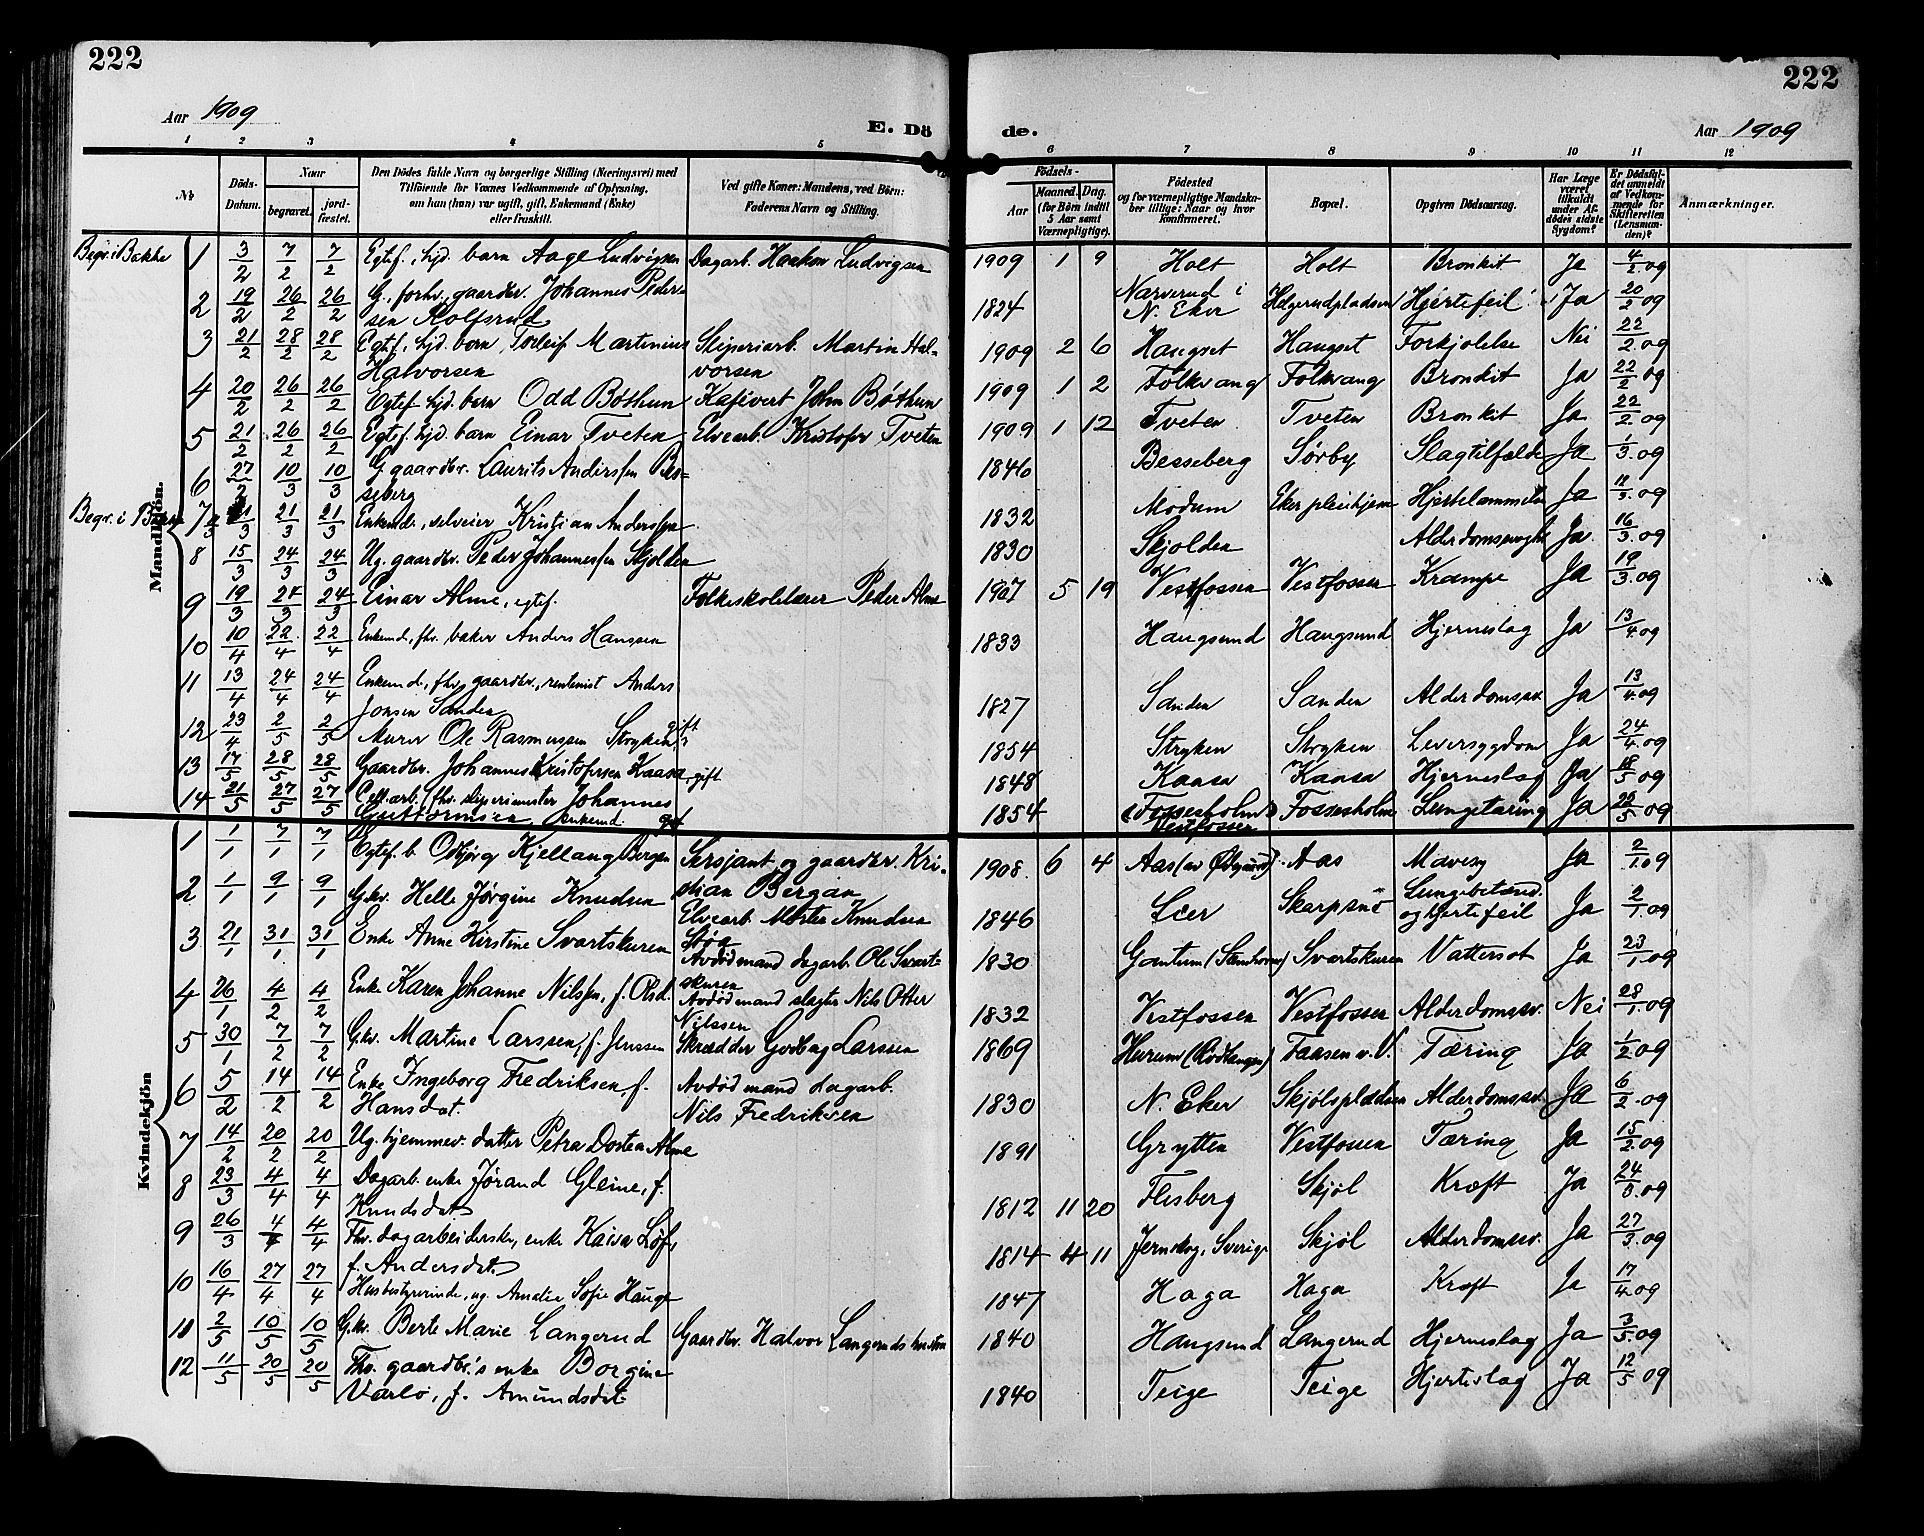 222
222
Aar 1909
E. Dö
de.
Aar 1909
1 2 3 4 5 6 7 8 9 10 11 12
No
Döds-Datum.
Naar
begravet.
jordfæstet.
Den Dödes fulde Navn og borgerlige Stilling (Næringsvei) med
Tilföiende for Voxnes Vedkommende af Oplysning,
om han (hun) var ugift, gift, Enkemand (Enke)
eller fraskilt.
Ved gifte Koner: Mandens, ved Börn:
Faderens Navn og Stilling.
Födsels-
Aar
Maaned. Dag.
(for Börn indtil 5 Aar samt Værnepligtige).
Födested
og for værnepligtige Mandskaber tillige: Naar og hvor konfirmeret.
Bopæl.
Opgiven Dödsaarsag.
Har Læge været tilkaldt under Afdödes sidste Sygdom?
Er Dödsfaldet anmeldt af Vedkommende for Skifteretten (Lensmanden)?
Anmærkninger.
Mandkjön.
Begr. i Bakke 1 3/2 7/2 7/2 Egtef. hjd. barn Aage Ludvigsen Dagarb. Haakon Ludvigsen 1909 1 9 Holt Holt Bronkit Ja 4/2 09
2 19/2 26/2 26/2 G., forhv. gaardbr. Johannes Pedersen Rolfsrud 1824 Narverud i N. Eker Helgerudpladsen Hjertefeil Ja 20/2 09
3 21/2 28/2 28/2 Egtef. hjd. barn, Torleif Martinius Halvorsen Sliperiarb. Martin Halvorsen 1909 2 6 Haugset Haugset Forkjølelse Nei 22/2 09
4 20/2 26/2 26/2 Egtef. hjd. barn Odd Bøthun Kafévert John Bøthun 1909 1 2 Folkvang Folkvang Bronkit Ja 22/2 09
5 21/2 26/2 26/2 Egtef. hjd. barn Einar Tveten Elvearb. Kristofer Tveten 1909 1 12 Tveten Tveten Bronkit Ja 22/2 09
6 27/2 10/3 10/3 G. gaardbr. Laurits Anderssen Besseberg 1846 Besseberg Sørby Slagtilfælde Ja 1/3 09
Begr. i Bakke 7 21/3 21/3 Enkemd., selveier Kristian Anderssen 1832 Modum Eker pleiehjem Hjertelammelse Ja 11/3 09
8 15/3 24/3 24/3 Ug. gaardbr. Peder Johannessen Skjolden 1830 Skjolden Ja 16/3 09
9 19/3 24/3 24/3 Einar Alme, egtef. Folkeskolelærer Peder Alme 1907 5 19 Vestfossen Vestfossen Krampe Ja 19/3 09
10 10/4 22/4 22/4 Enkemd., fhv. baker Anders Hanssen 1833 Haugsund Haugsund Hjerneslag Ja 13/4 09
11 13/4 24/4 24/4 Enkemd., fhv. gaardbr., rentenist Anders Jonsen Sanden 1827 Sanden Sanden Alderdomssv. Ja 13/4 09
12 23/4 2/5 2/5 Murer Ole Rasmussen Stryken, gift 1854 Stryken Stryken Leversygdom Ja 24/4 09
13 17/5 28/5 28/5 Gaardbr. Johannes Kristofersen Kaasa, gift 1848 Kaasa Kaasa Hjerneslag Ja 18/5 09
14 21/5 27/5 27/5 Cell.arb. (fhv. sliperimester Johannes Guttormsen enkemd. 1854 (Fossesholm) Vestfossen Fossesholm Lungetæring Ja 25/5 09
Kvindekjön
1 1/1 7/1 7/1 Egtef. b. Odbjørg Kjellaug Bergan Sersjant og gaardbr. Kristian Bergan 1908 6 4 Aas Aas Mavesyg Ja 2/1 09
2 1/1 9/1 9/1 G.kv. Helle Jørgine Knudsen Elvearb. Morten Knudsen Støa 1846 Lier Skarpsnö Lungebetænd. og hjertefeil Ja 2/1 09
3 21/1 31/1 31/1 Enke Anne Kirstine Svartskuren Avdød mand dagarb. Ole Svartskuren 1830 Svartskuren Vattersot Ja 23/1 09
4 26/1 4/2 4/2 Enke Karen Johanne Nilssen, f. Olsd. Avdød mand slagter Nils Otter Nilssen 1832 Vestfossen Vestfossen Alderdomssv. Nei 28/1 09
5 30/1 7/2 7/2 G.kv. Martine Larssen, f. Jenssen Skrædder Gudbrg Larssen 1869 Hurum (Rødtangen) Faasen v. V. Tæring Ja 1/2 09
6 5/2 14/2 14/2 Enke Ingeborg Fredriksen, f. Hansdat. Avdød mand dagarb. Nils Fredriksen 1830 N. Eker Skjølspladsen Alderdomssv. Ja 6/2 09
7 14/2 20/2 20/2 Ug. hjemmev. datter Petra Dostea Alme 1891 Grytten Vestfossen Tæring Ja 15/2 09
8 23/3 4/4 4/4 Dagarb. enke Jørand Gleine, f. Knudsdat. 1812 11 20 Flesberg Skjøl Kræft Ja 24/3 09
9 26/3 4/4 4/4 Fhv. dagarbeiderske, enke Kaisa Löf, f. Andersdat. 1814 4 11 Jernskog, Sverige Skjøl Alderdomssv. Ja 27/3 09
10 16/4 27/4 27/4 Husbestyrerinde, ug. Amalie Sofie Hauge 1847 Haga Haga Kræft Ja 17/4 09
11 2/5 10/5 10/5 G.kv. Berte Marie Langerud Gaardbr. Halvor Langeruds hustru 1840 Haugsund Langerud Hjerneslag Ja 3/5 09
12 11/5 20/5 20/5 Fhv. gaardbr.'s enke Borgine Varlo, f. Amundsdat. 1840 Teige Teige Hjerteslag Ja 12/5 09